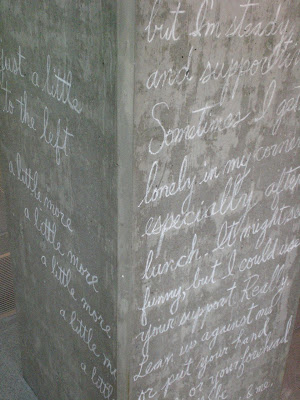 just a little
to the left
a little more
a little more
a little more
a little
a little
but I'm steady
and
Sometimes I get
lonely in my
especially after
lunch. It might
funny, but I could use
your support. Really.
Lean up against me
or put your hand
or your forehead
me.